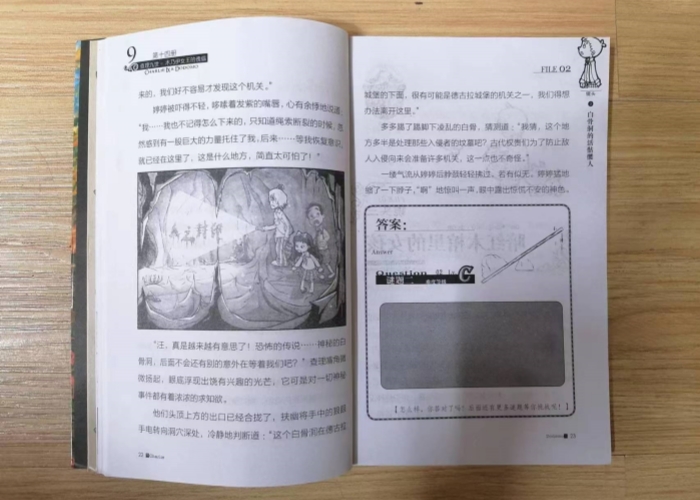 9
第十四册
CHARLIE IX & DODOMO
来的，我们好不容易才发现这个机关。”
婷婷被吓得不轻，哆嗦着发紫的嘴唇，心有余悸地说道：
“我……我也不记得怎么下来的，只知道绳索断裂的时候，突
然感到有一股巨大的力量托住了我，后来……等我恢复意识，
就已经在这里了，这是什么地方，简直太可怕了！”
“汪，真是越来越有意思了！恐怖的传说……神秘的白
骨洞，后面不会还有别的意外在等着我们吧？”查理嘴角微
微扬起，眼底浮现出饶有兴趣的光芒，它可是对一切神秘
事件都有着浓浓的求知欲。
他们头顶上方的出口已经合拢了，扶幽将手中的
手电转向洞穴深处，冷静地判断道：“这个白骨洞在德古拉
22
FILE 02
白骨洞的活骷髅人
城堡的下面，很有可能是德古拉城堡的机关之一，我们得想
办法离开这里。”
多多踢了踢脚下凌乱的白骨，猜测道：“我猜，这个地
方多半是处理那些入侵者的坟墓吧？古代权贵们为了防止敌
人入侵向来会准备许多机关，这一点也不奇怪。”
一缕气流从婷婷后脖颈轻轻拂过，若有似无，婷婷猛地
缩了一下脖子，“啊”地惊叫一声，眼中露出惊慌不安的神色。
答案：
Answer
Question
C
23